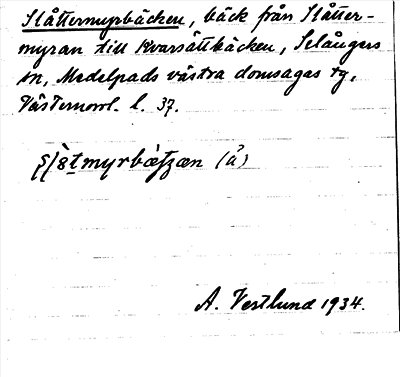 Slåttermyrbäcken, bäck från Slåtter-
myran till Kvarsättbäcken, Selångers
sn, Medelpads västra domsagas tg,
Västernorrl. l. 37.
(å)
A. Vestlund 1934.